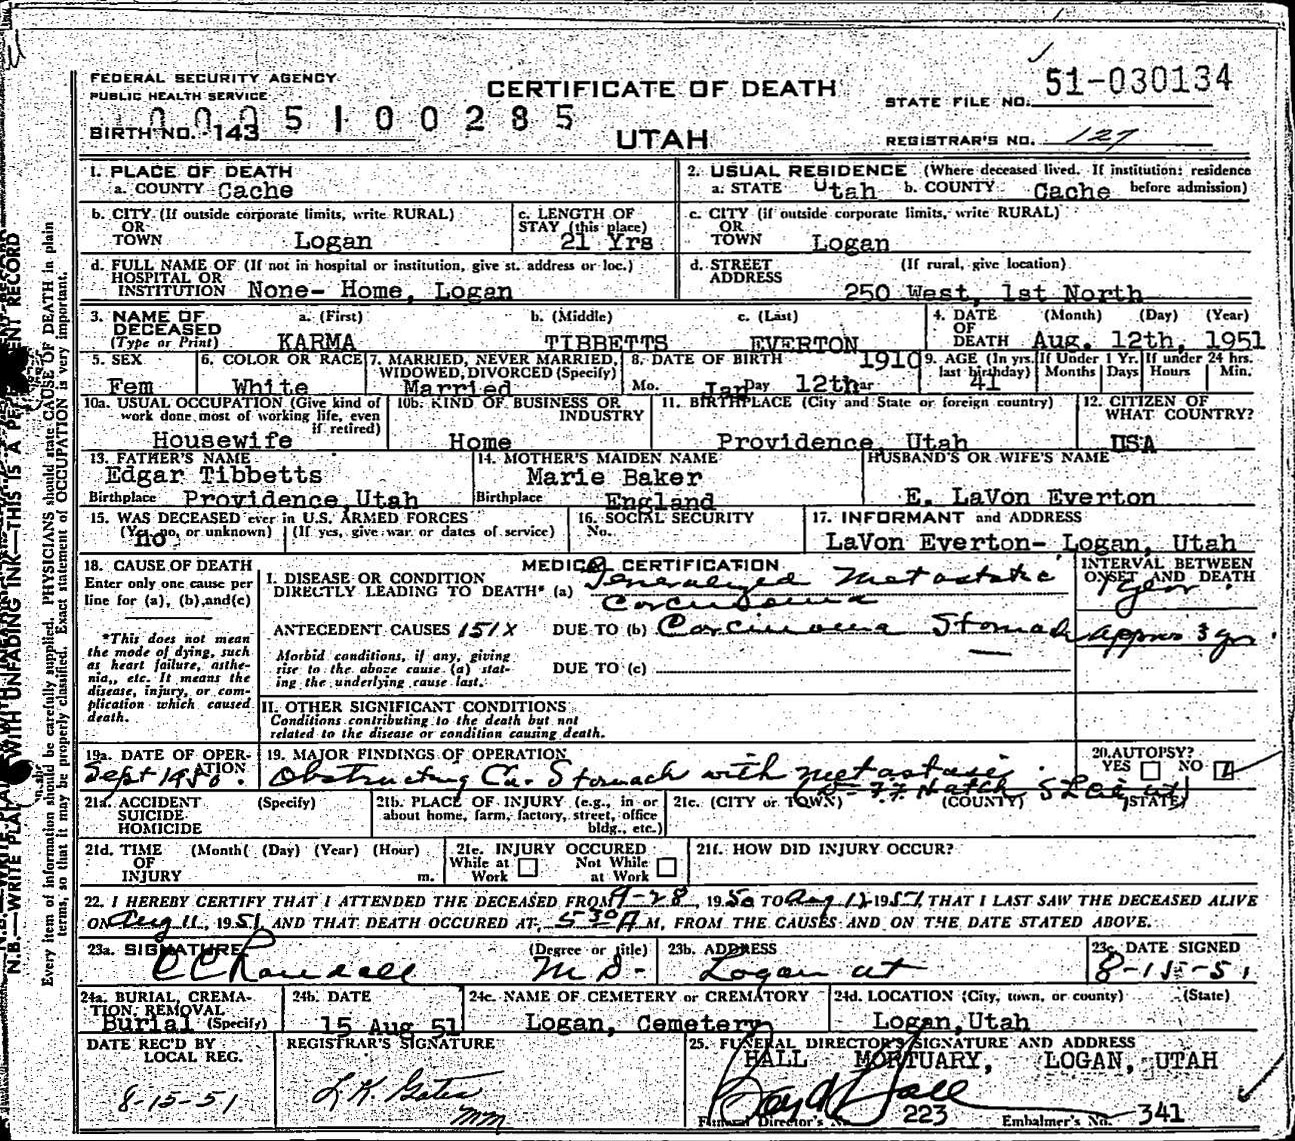 FEDERAL SECURITY AGENCY
PUBLIC HEALTH SERVICE
CERTIFICATE OF DEATH
STATE FILE NO. 51-030134
0005100285
BIRTH NO. 143
UTAH
REGISTRAR'S NO. 127
1. PLACE OF DEATH
a. COUNTY Cache
2. USUAL RESIDENCE (Where deceased lived. If institution: residence before admission)
a. STATE Utah b. COUNTY Cache
b. CITY (If outside corporate limits, write RURAL)
OR
TOWN Logan
c. LENGTH OF
STAY (this place)
21 Yrs
c. CITY (if outside corporate limits, write RURAL)
OR
TOWN Logan
d. FULL NAME OF (If not in hospital or institution, give st. address or loc.)
HOSPITAL OR
INSTITUTION None- Home, Logan
d. STREET (If rural, give location)
ADDRESS
250 West, 1st North
3. NAME OF
DECEASED
(Type or Print)
a. (First) b. (Middle) c. (Last)
KARMA TIBBETTS EVERTON
4. DATE (Month) (Day) (Year)
OF
DEATH Aug. 12th, 1951
5. SEX
Fem
6. COLOR OR RACE
White
7. MARRIED, NEVER MARRIED,
WIDOWED, DIVORCED (Specify)
Married
8. DATE OF BIRTH 1910
Mo. Jan Day 12th
9. AGE (In yrs. last birthday)
41
If Under 1 Yr.
Months Days
If under 24 hrs.
Hours Min.
10a. USUAL OCCUPATION (Give kind of
work done most of working life, even
if retired)
Housewife
10b. KIND OF BUSINESS OR
INDUSTRY
Home
11. BIRTHPLACE (City and State or foreign country)
Providence, Utah
12. CITIZEN OF
WHAT COUNTRY?
USA
13. FATHER'S NAME
Edgar Tibbetts
Birthplace Providence, Utah
14. MOTHER'S MAIDEN NAME
Marie Baker
Birthplace England
HUSBAND'S OR WIFE'S NAME
E. LaVon Everton
15. WAS DECEASED ever in U.S. ARMED FORCES
(Yes, no, or unknown) (If yes, give war or dates of service)
no
16. SOCIAL SECURITY
No.
17. INFORMANT and ADDRESS
LaVon Everton- Logan, Utah
18. CAUSE OF DEATH
Enter only one cause per
line for (a), (b), and (c)
*This does not mean
the mode of dying, such
as heart failure, asthe-
nia, etc. It means the
disease, injury, or com-
plication which caused
death.
MEDICAL CERTIFICATION
I. DISEASE OR CONDITION
DIRECTLY LEADING TO DEATH* (a) Generalized Metastatic
Carcinoma
INTERVAL BETWEEN
ONSET AND DEATH
1 year
ANTECEDENT CAUSES 151X DUE TO (b) Carcinoma Stomach approx 3 yr.
Morbid conditions, if any, giving
rise to the above cause (a) stat-
ing the underlying cause last.
DUE TO (c)
II. OTHER SIGNIFICANT CONDITIONS
Conditions contributing to the death but not
related to the disease or condition causing death.
19a. DATE OF OPER-
ATION
Sept 1950.
19. MAJOR FINDINGS OF OPERATION
Obstructing Ca. Stomach with metastasis.
Hatch
20. AUTOPSY?
YES NO
21a. ACCIDENT (Specify)
SUICIDE
HOMICIDE
21b. PLACE OF INJURY (e.g., in or
about home, farm, factory, street, office
bldg., etc.)
21c. (CITY or TOWN) (COUNTY) (STATE)
21d. TIME (Month) (Day) (Year) (Hour)
OF
INJURY m.
21e. INJURY OCCURED
While at Work Not While at Work
21f. HOW DID INJURY OCCUR?
22. I HEREBY CERTIFY THAT I ATTENDED THE DECEASED FROM 9-28, 1950 TO Aug 12 1951, THAT I LAST SAW THE DECEASED ALIVE
ON Aug 11, 1951, AND THAT DEATH OCCURED AT 5:30 A M, FROM THE CAUSES AND ON THE DATE STATED ABOVE.
23a. SIGNATURE (Degree or title)
C C Randall M D
23b. ADDRESS
Logan ut
23c. DATE SIGNED
8-15-51
24a. BURIAL, CREMA-
TION, REMOVAL
Burial (Specify)
24b. DATE
15 Aug 51
24c. NAME OF CEMETERY or CREMATORY
Logan, Cemetery
24d. LOCATION (City, town, or county) (State)
Logan, Utah
DATE REC'D BY
LOCAL REG.
8-15-51
REGISTRAR'S SIGNATURE
L.K. Gates
mm
25. FUNERAL DIRECTOR'S SIGNATURE AND ADDRESS
HALL MORTUARY, LOGAN, UTAH
Boyd Hall
Funeral Director's No. 223 Embalmer's No. 341
N.B.—WRITE PLAINLY WITH UNFADING INK—THIS IS A PERMANENT RECORD
Every item of information should be carefully supplied. PHYSICIANS should state CAUSE OF DEATH in plain
terms, so that it may be properly classified. Exact statement of OCCUPATION is very important.